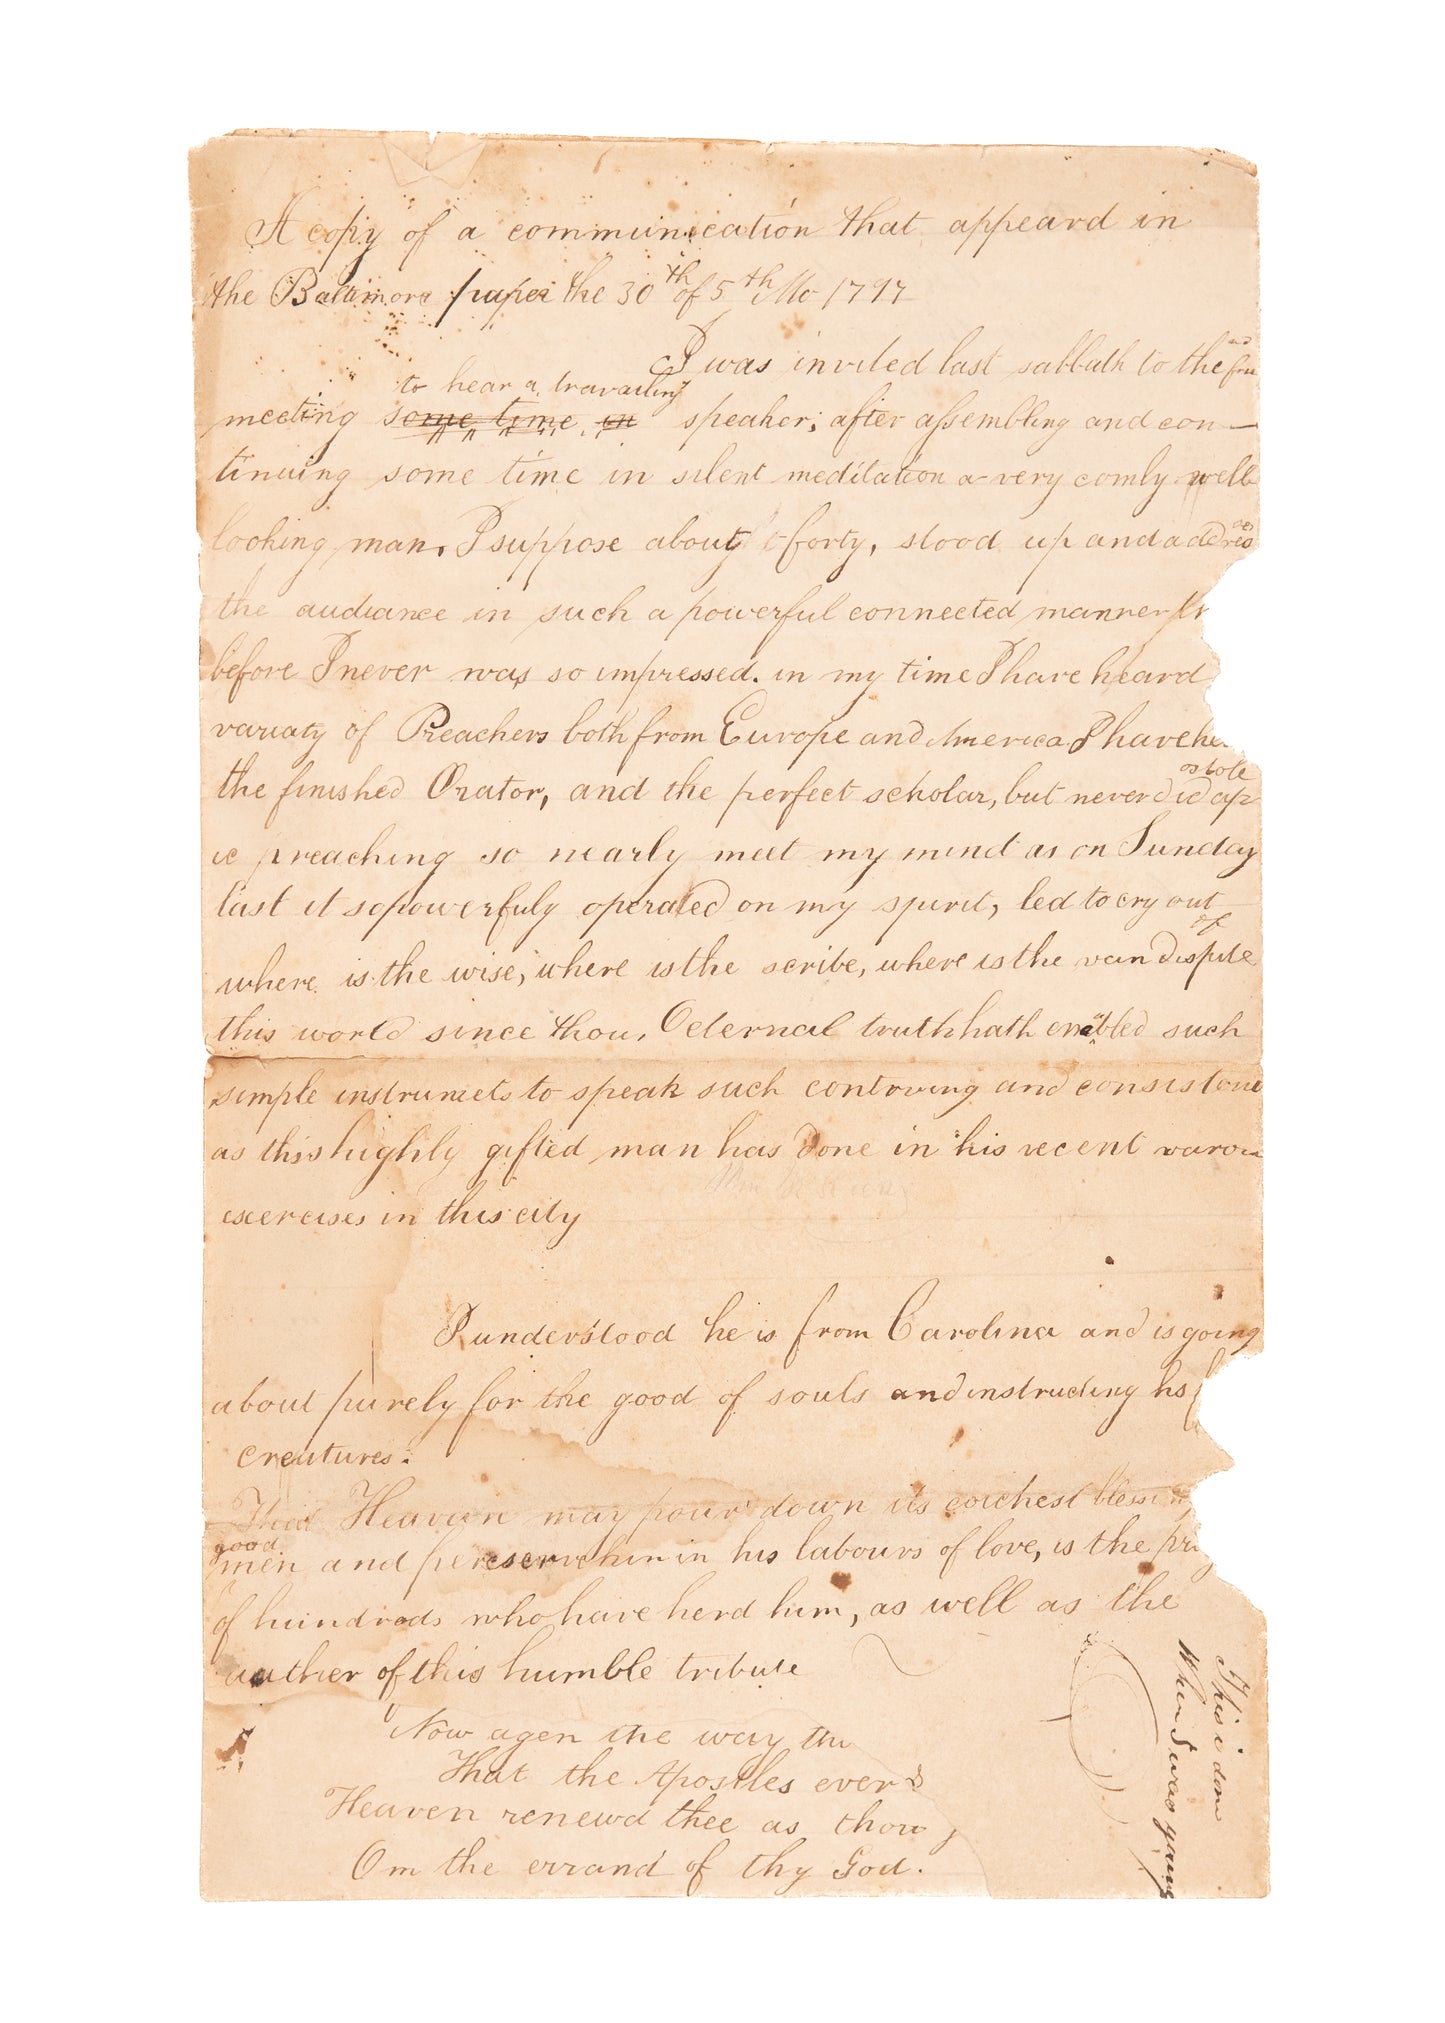 A copy of a communication that appeard in
the Baltimore paper the 30th of 5th Mo 1797
I was invited last sabbath to the
to hear a travailing
meeting some time in speaker; after assembling and con-
tinuing some time in silent meditation a very comly well
looking man. I suppose about forty, stood up and addres
the audiance in such a powerful connected manner
before I never was so impressed. in my time I have heard
variaty of Preachers both from Europe and America I have he
the finished Orator, and the perfect scholar, but never did ap
ostole
ic preaching so nearly meet my mind as on Sunday
last it so powerfuly operated on my spirit, led to cry out
of
where is the wise, where is the scribe, where is the vain dispute
this world since thou, O eternal truth hath enabled such
simple instrumets to speak such
and
as this highly gifted man has done in his recent
exercises in this city
I understood he is from Carolina and is going
about purely for the good of souls and instructing his f
creatures.
That Heaven may pour down its coichest blessin
good
men and perserve him in his labours of love, is the pr
of hundrads who have herd him, as well as the
auther of this humble tribute
Now agen the way
That the Apostles ever
Heaven renewd thee as thou
Om the errand of thy God.
This i done
When I was young